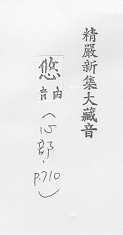 精嚴新集大藏音
悠
音由
(心部,
p.710)